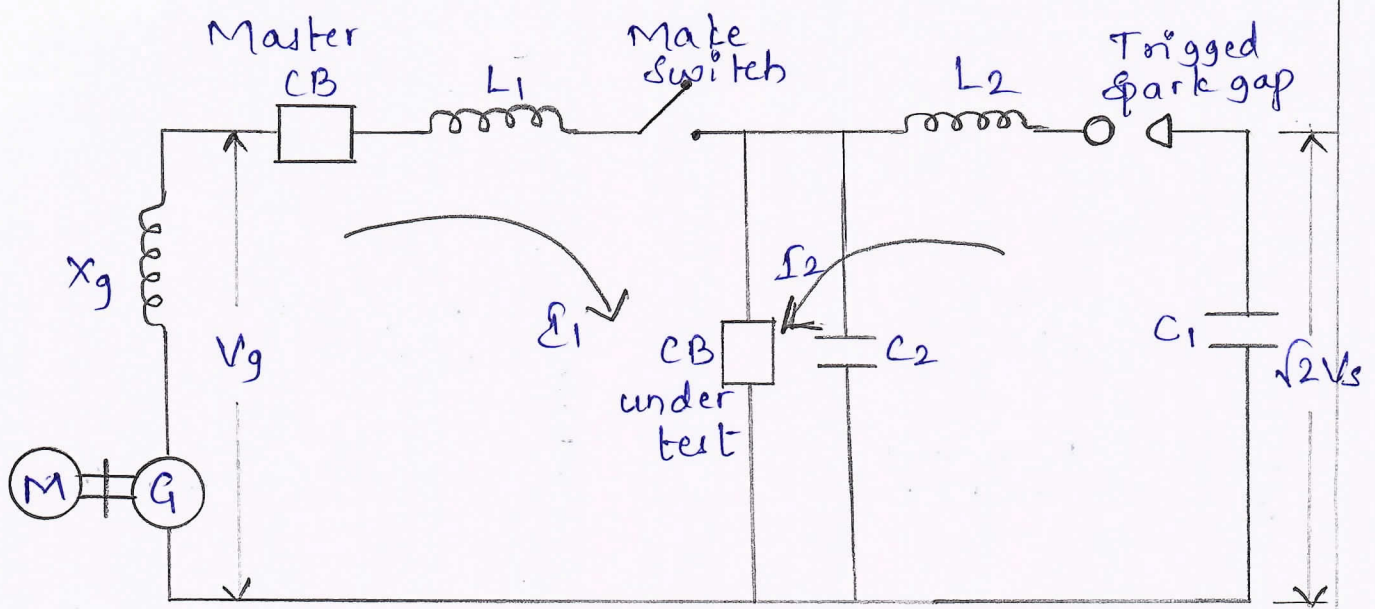 Master
CB
L1
Make
Switch
L2
Trigged
Spark gap
Xg
Vg
I1
I2
CB
under
test
C2
C1
√2Vs
M
G